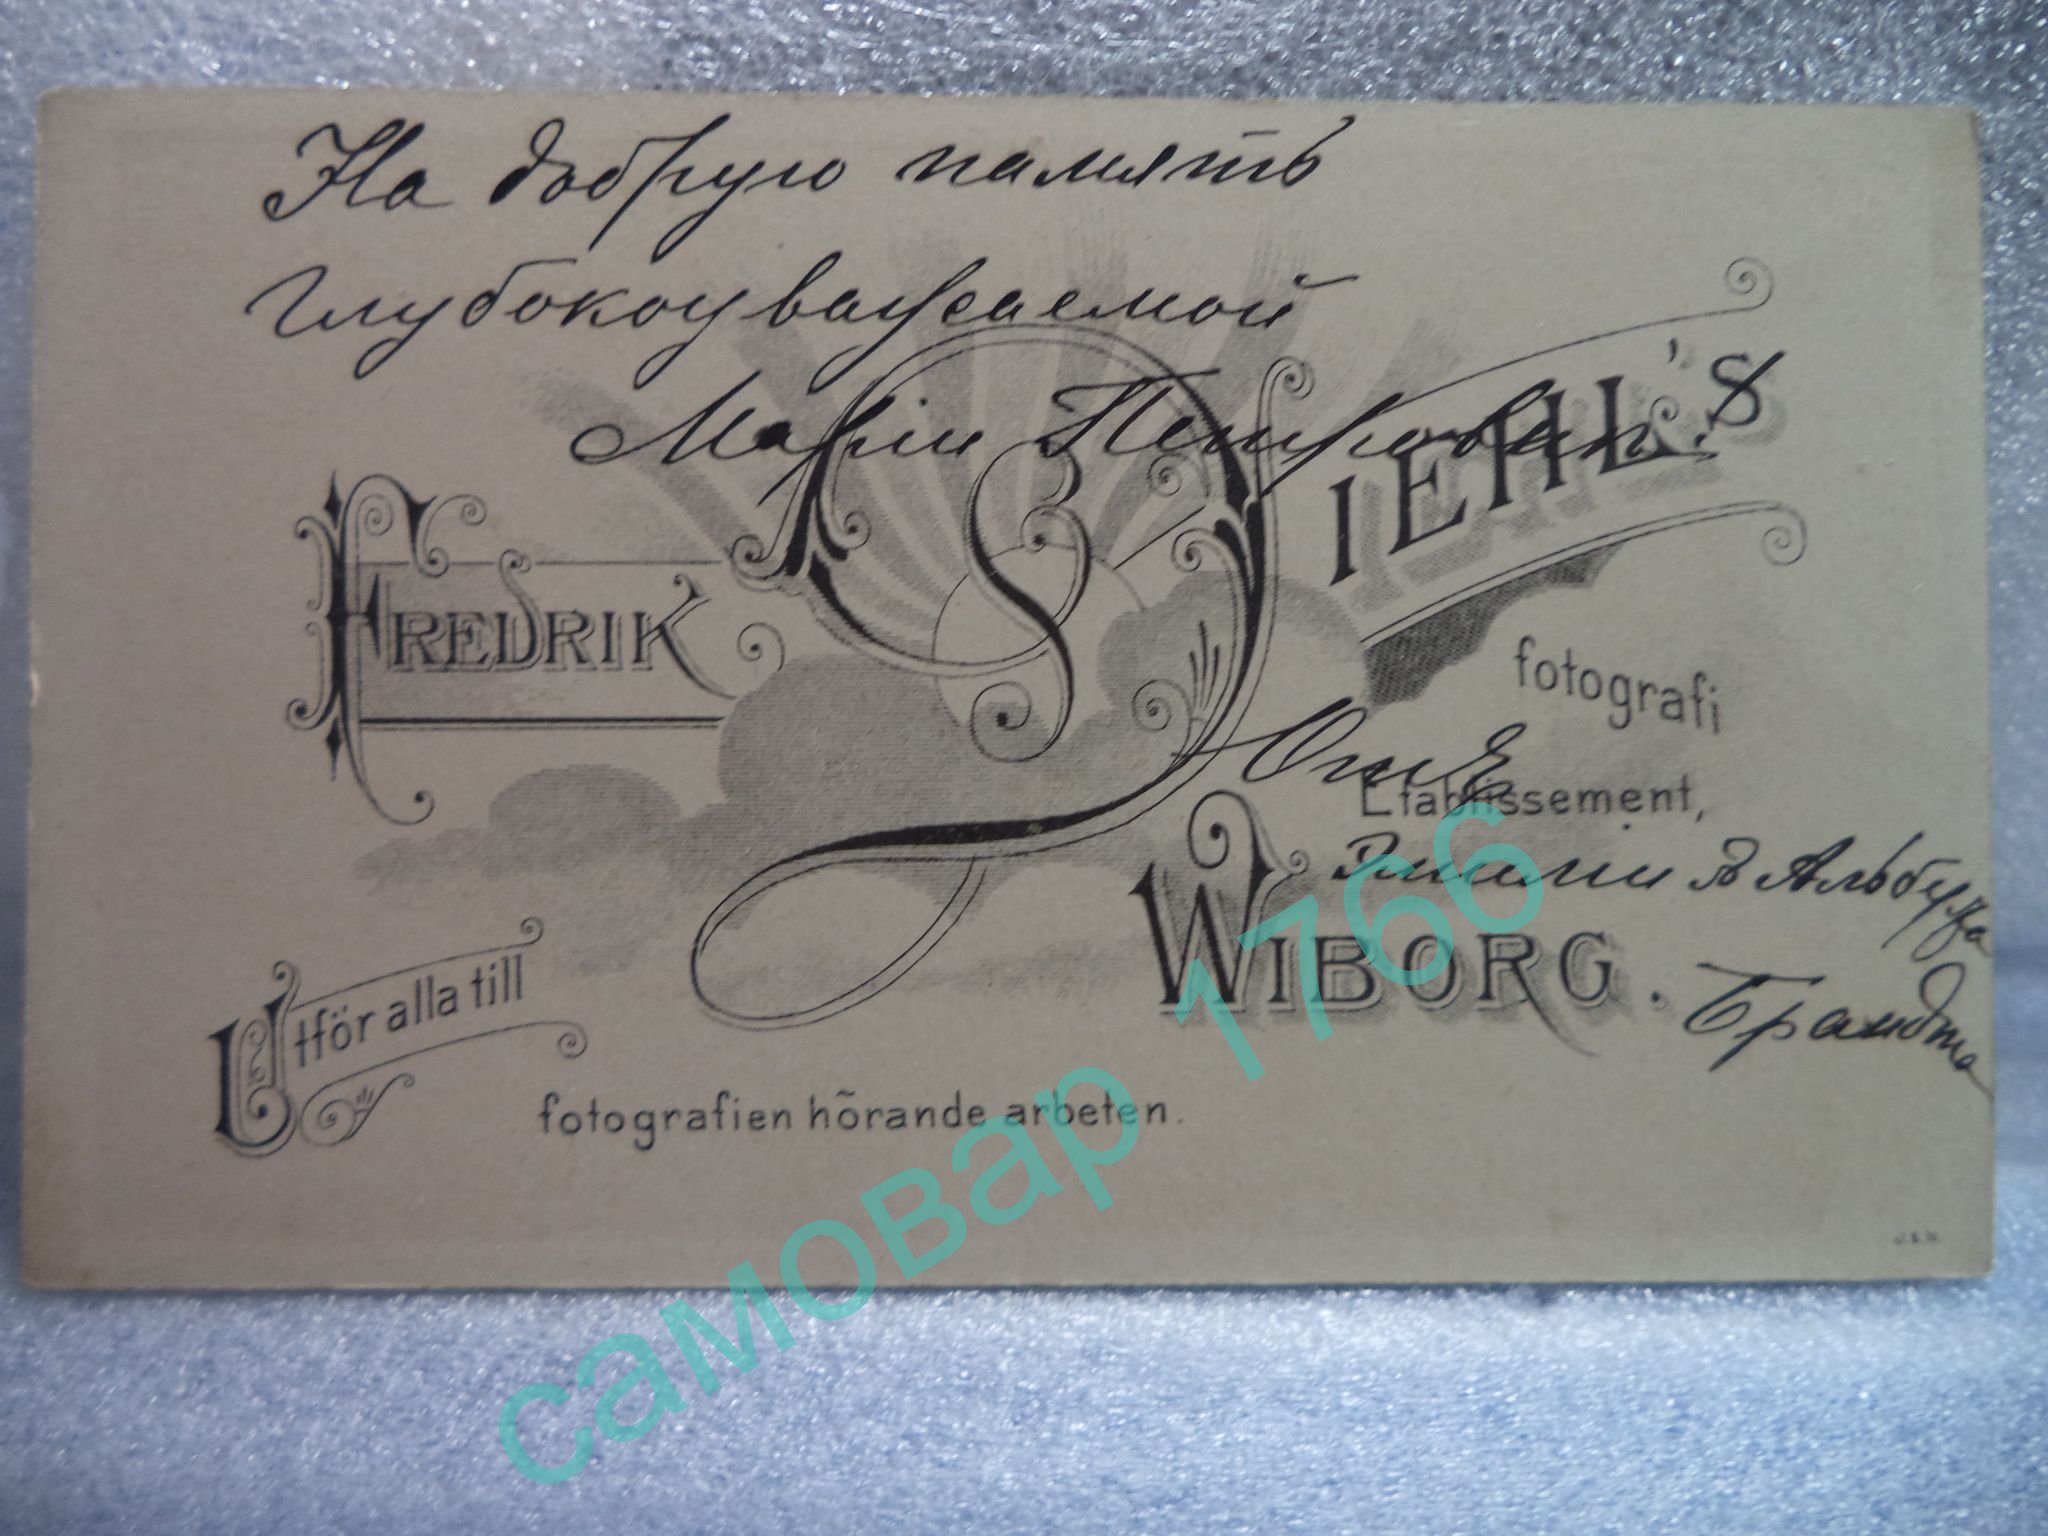 На добрую память
глубокоуважаемой
Маріи Петровнѣ.
FREDRIK DIEHL'S
fotografi
Отъ
Etablissement,
Эмиліи и Альбума
WIBORG.
Брандта
Utför alla till
fotografien hörande arbeten.
самовар 1766